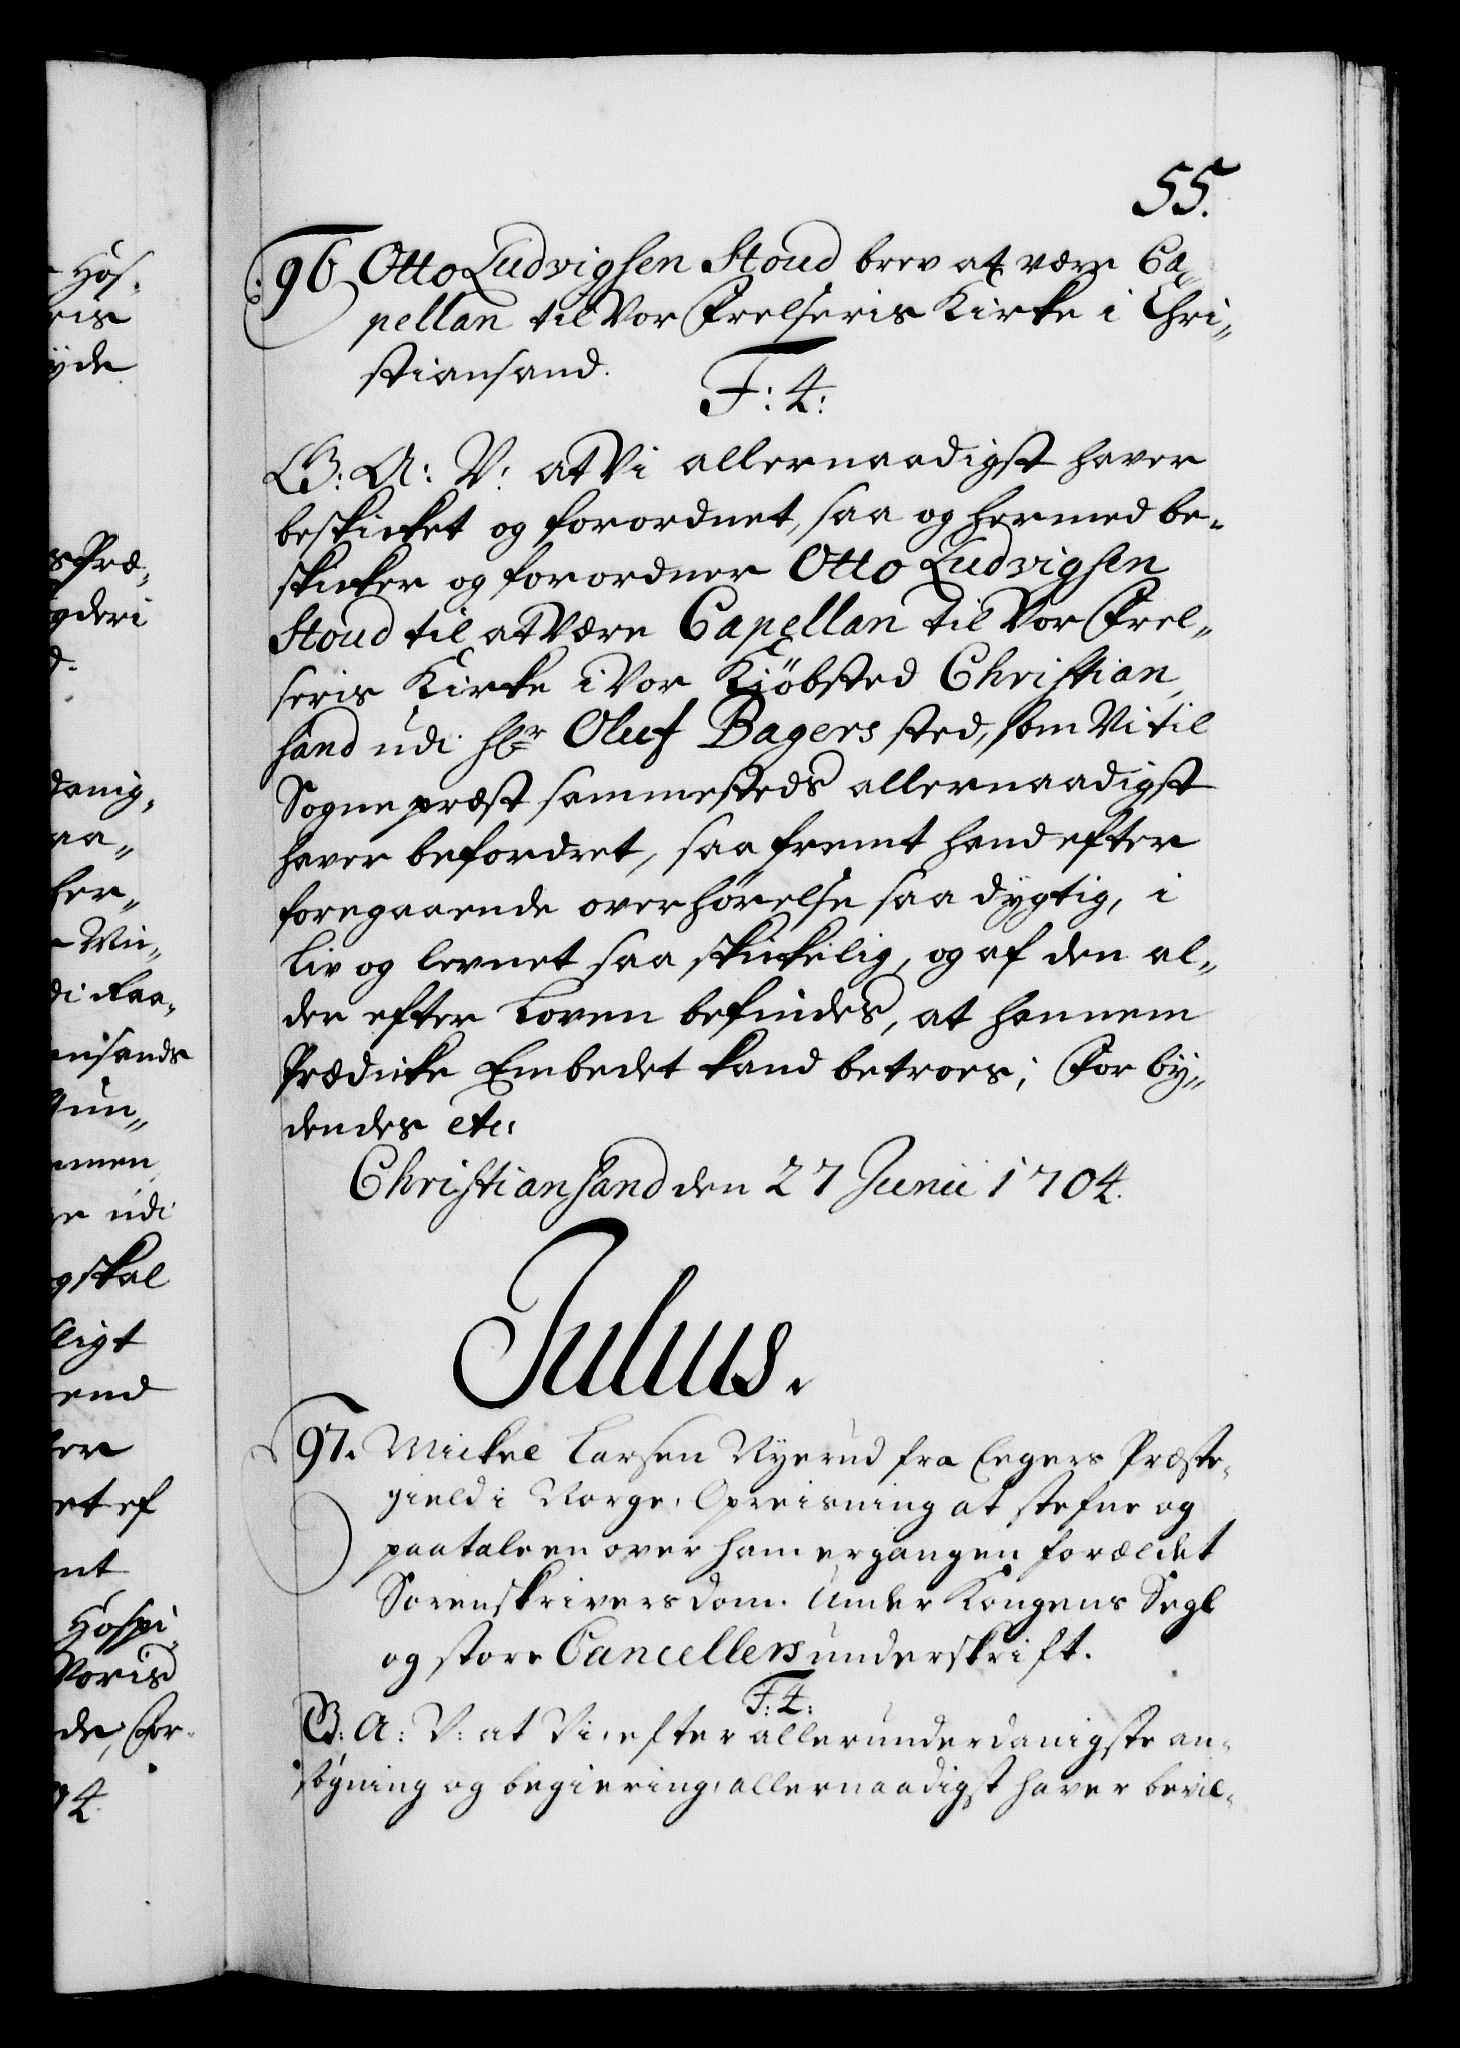 55.
96 Otto Ludvigsen Stoud brev at være Ca-
pellan til Vor Frelseris Kirke i Chri-
stiansand.
F: 4:
G: A: V: at Vi allernaadigst haver
beskicket og forordnet, saa og hermed be-
skicker og forordner Otto Ludvigsen
Stoud til at være Capellan til Vor Frel-
seris Kirke i Vor Kiöbsted Christian-
sand udi Hr Oluf Bagers sted, som Vi til
Sognepræst sammesteds allernaadigst
haver befordret, saafremt hand efter
foregaaende overhörelse saa dygtig, i
liv og levnet saa skickelig, og af den al-
der efter Loven befindes, at hannem
Prædicke Embedet kand betroes; For by-
dendes etc:
Christiansand den 27 Junii 1704.
Julius.
97. Mickel Larsen Ryerud fra Eegers Præste-
gield i Norge, Opreisning at stefne og
paatale en over ham ergangen forældet
Sorenskrivers dom. Under Kongens Segl
og store Cancellers underskrift.
F: 4:
G: A: V: at Vi, efter allerunderdanigste an-
søgning og begiering, allernaadigst haver bevil-